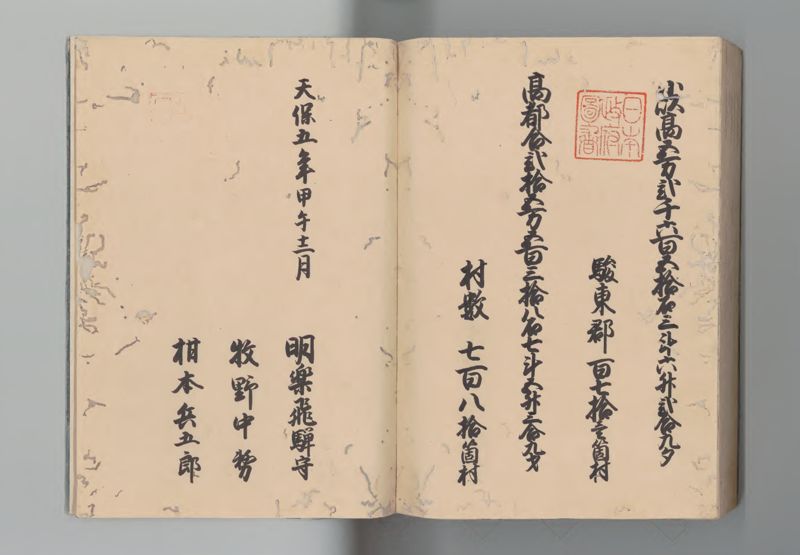 小以高五万弐千六百五拾石三斗六升弐合九夕
日本
政府
圖書
駿東郡 百七拾壱箇村
高都合弐拾五万五百三拾八石七斗五升三合九夕
村数 七百八拾箇村
天保五年甲午十二月
明樂飛騨守
牧野中務
柑本兵五郎